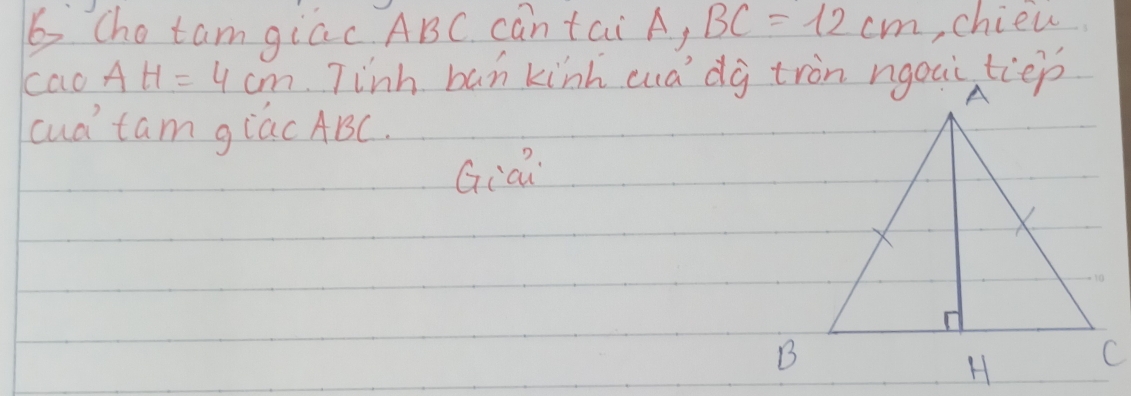 6> Cho tam giác ABC cân tại A, BC = 12 cm, chiều
cao AH = 4 cm. Tính bán kính của đg tròn ngoại tiếp
của tam giác ABC.
Giải
A
B
H
C